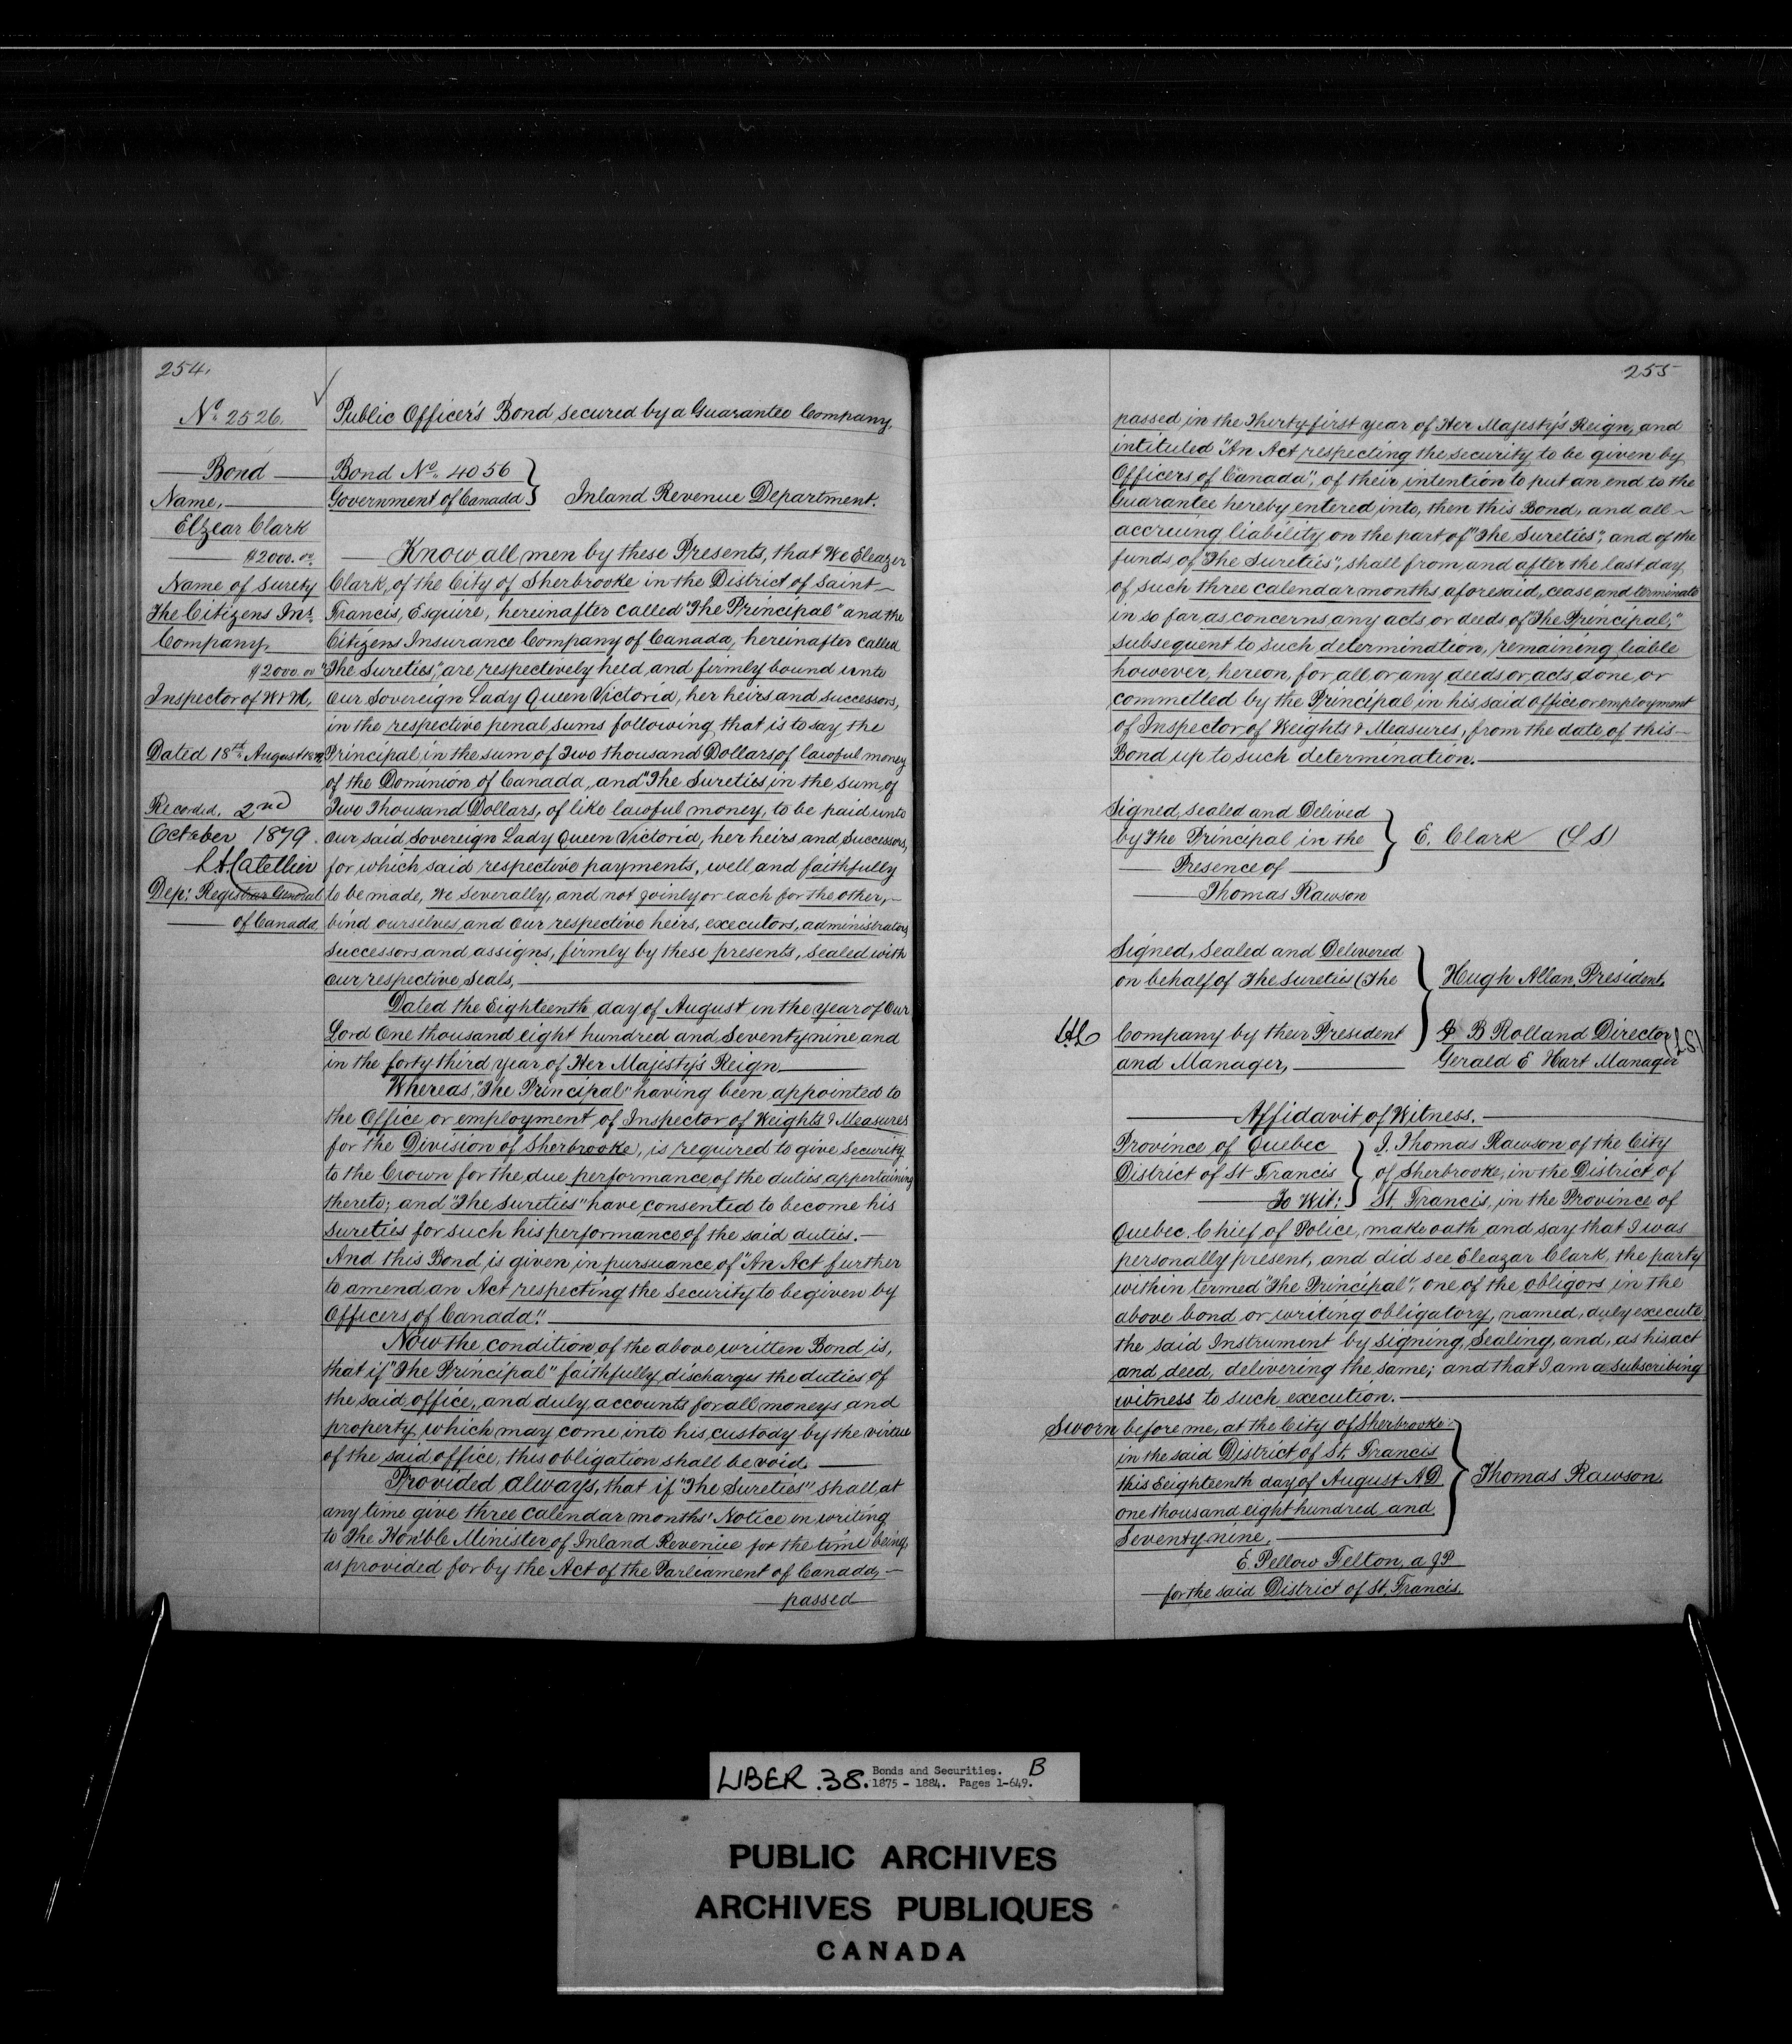 254.
No. 2526.
Bond
Name,
Elzear Clark
$2000.00
Name of Surety
The Citizens Ins.
Company,
$2000.00
Inspector of W & M,
Dated 18th August 1879
Recorded, 2nd
October 1879.
L.A. Catellier
Dep: Registrar General
of Canada
Public Officer's Bond secured by a Guarantee Company,
Bond No. 4056
Government of Canada } Inland Revenue Department.
Know all men by these Presents, that We Eleazer
Clark, of the City of Sherbrooke in the District of Saint
Francis, Esquire, hereinafter called "The Principal" and the
Citizens Insurance Company of Canada, hereinafter called
"The Sureties", are respectively held and firmly bound unto
Our Sovereign Lady Queen Victoria, her heirs and successors,
in the respective penal sums following that is to say the
Principal in the sum of Two thousand Dollars of lawful money
of the Dominion of Canada, and "The Sureties, in the sum of
Two Thousand Dollars, of like lawful money, to be paid unto
our said Sovereign Lady Queen Victoria, her heirs and Successors,
for which said respective payments, well and faithfully
to be made, We Severally, and not joinly or each for the other,
bind ourselves and our respective heirs, executors, administrators
Successors and assigns, firmly by these presents, Sealed with
our respective Seals,
Dated the Eighteenth day of August in the year of Our
Lord One thousand eight hundred and Seventy nine and
in the forty third year of Her Majesty's Reign
Whereas, "The Principal" having been appointed to
the Office or employment of Inspector of Weights & Measures
for the Division of Sherbrooke, is required to give Security
to the Crown for the due performance of the duties appertaining
thereto; and "The Sureties" have consented to become his
Sureties for such his performance of the said duties.
And this Bond is given in pursuance of "An Act further
to amend an Act respecting the Security to be given by
Officers of Canada".
Now the condition of the above written Bond is,
that if "The Principal" faithfully discharges the duties of
the said office, and duly accounts for all moneys and
property which may come into his custody by the virtue
of the said office, this obligation shall be void.
Provided always, that if "The Sureties" shall at
any time give three calendar months' Notice in writing
to The Hon'ble Minister of Inland Revenue for the time being,
as provided for by the Act of the Parliament of Canada,
passed
255
passed in the Thirty first year of Her Majesty's Reign, and
intituled "An Act respecting the security to be given by
Officers of Canada", of their intention to put an end to the
Guarantee hereby entered into, then this Bond, and all
accruing liability on the part of "The Sureties", and of the
funds of "The Sureties", shall from and after the last day
of such three calendar months aforesaid, cease and terminate
in so far as concerns any acts or deeds of "The Principal,"
subsequent to such determination, remaining liable
however, hereon, for all or any deeds or acts, done, or
committed by the Principal in his said office or employment
of Inspector of Weights & Measures, from the date of this
Bond up to such determination.
Signed, Sealed and Delived
by The Principal in the } E. Clark (L S)
Presence of
Thomas Rawson
Signed, Sealed and Delivered
on behalf of The Sureties (The } Hugh Allan, President,
Company by their President J B Rolland Director (L.S.)
and Manager, Gerald E Hart Manager
Affidavit of Witness.
Province of Quebec } I, Thomas Rawson of the City
District of St Francis of Sherbrooke, in the District of
To Wit: St. Francis, in the Province of
Quebec, Chief of Police, make oath and say that I was
personally present, and did see Eleazar Clark, the party
within termed "The Principal", one of the obligors in the
above bond or writing obligatory, named, duly execute
the said Instrument by signing, Sealing, and, as his act
and deed, delivering the same; and that I am a subscribing
witness to such execution.
Sworn before me, at the City of Sherbrooke
in the said District of St. Francis
this Eeighteenth day of August AD } Thomas Rawson
one thousand eight hundred and
Seventy nine,
E. Pellow Felton, a JP
for the said District of St. Francis.
LIBER .38. Bonds and Securities. B
1875 - 1884. Pages 1-649.
PUBLIC ARCHIVES
ARCHIVES PUBLIQUES
CANADA